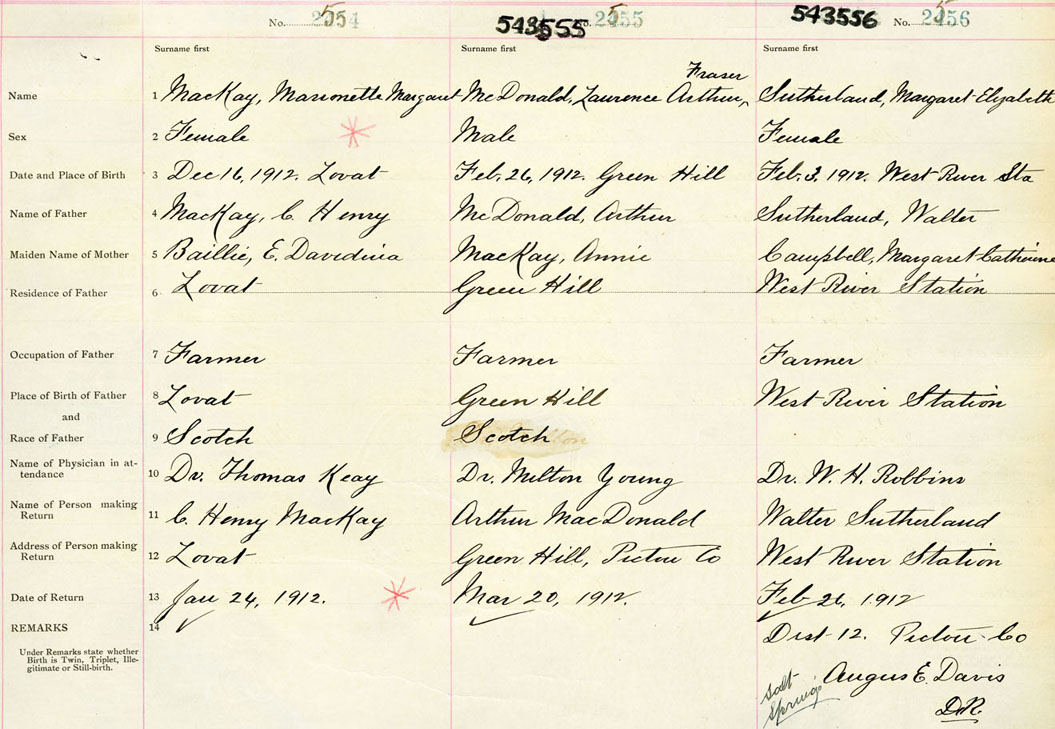 No. 2554 543555 No. 2455 543556 No. 2456
Surname first Surname first Surname first
Fraser
Name 1 MacKay, Marionette Margaret McDonald, Laurence Arthur, Sutherland, Margaret Elizabeth
Sex 2 Female Male Female
Date and Place of Birth 3 Dec 16, 1912. Lovat Feb. 26, 1912. Green Hill Feb. 3, 1912. West River Sta
Name of Father 4 MacKay, C. Henry McDonald, Arthur Sutherland, Walter
Maiden Name of Mother 5 Baillie, E. Davidina MacKay, Annie Campbell, Margaret Catherine
Residence of Father 6 Lovat Green Hill West River Station
Occupation of Father 7 Farmer Farmer Farmer
Place of Birth of Father 8 Lovat Green Hill West River Station
and
Race of Father 9 Scotch Scotch
Name of Physician in at-
tendance 10 Dr. Thomas Keay Dr. Milton Young Dr. W. H. Robbins
Name of Person making
Return 11 C. Henry MacKay Arthur MacDonald Walter Sutherland
Address of Person making
Return 12 Lovat Green Hill, Pictou Co West River Station
Date of Return 13 Jan 24, 1912. Mar 20, 1912. Feb 26, 1912
REMARKS 14 Dist 12. Pictou Co
Under Remarks state whether
Birth is Twin, Triplet, Ille-
gitimate or Still-birth.
Angus E. Davis
Salt
Springs
D.R.